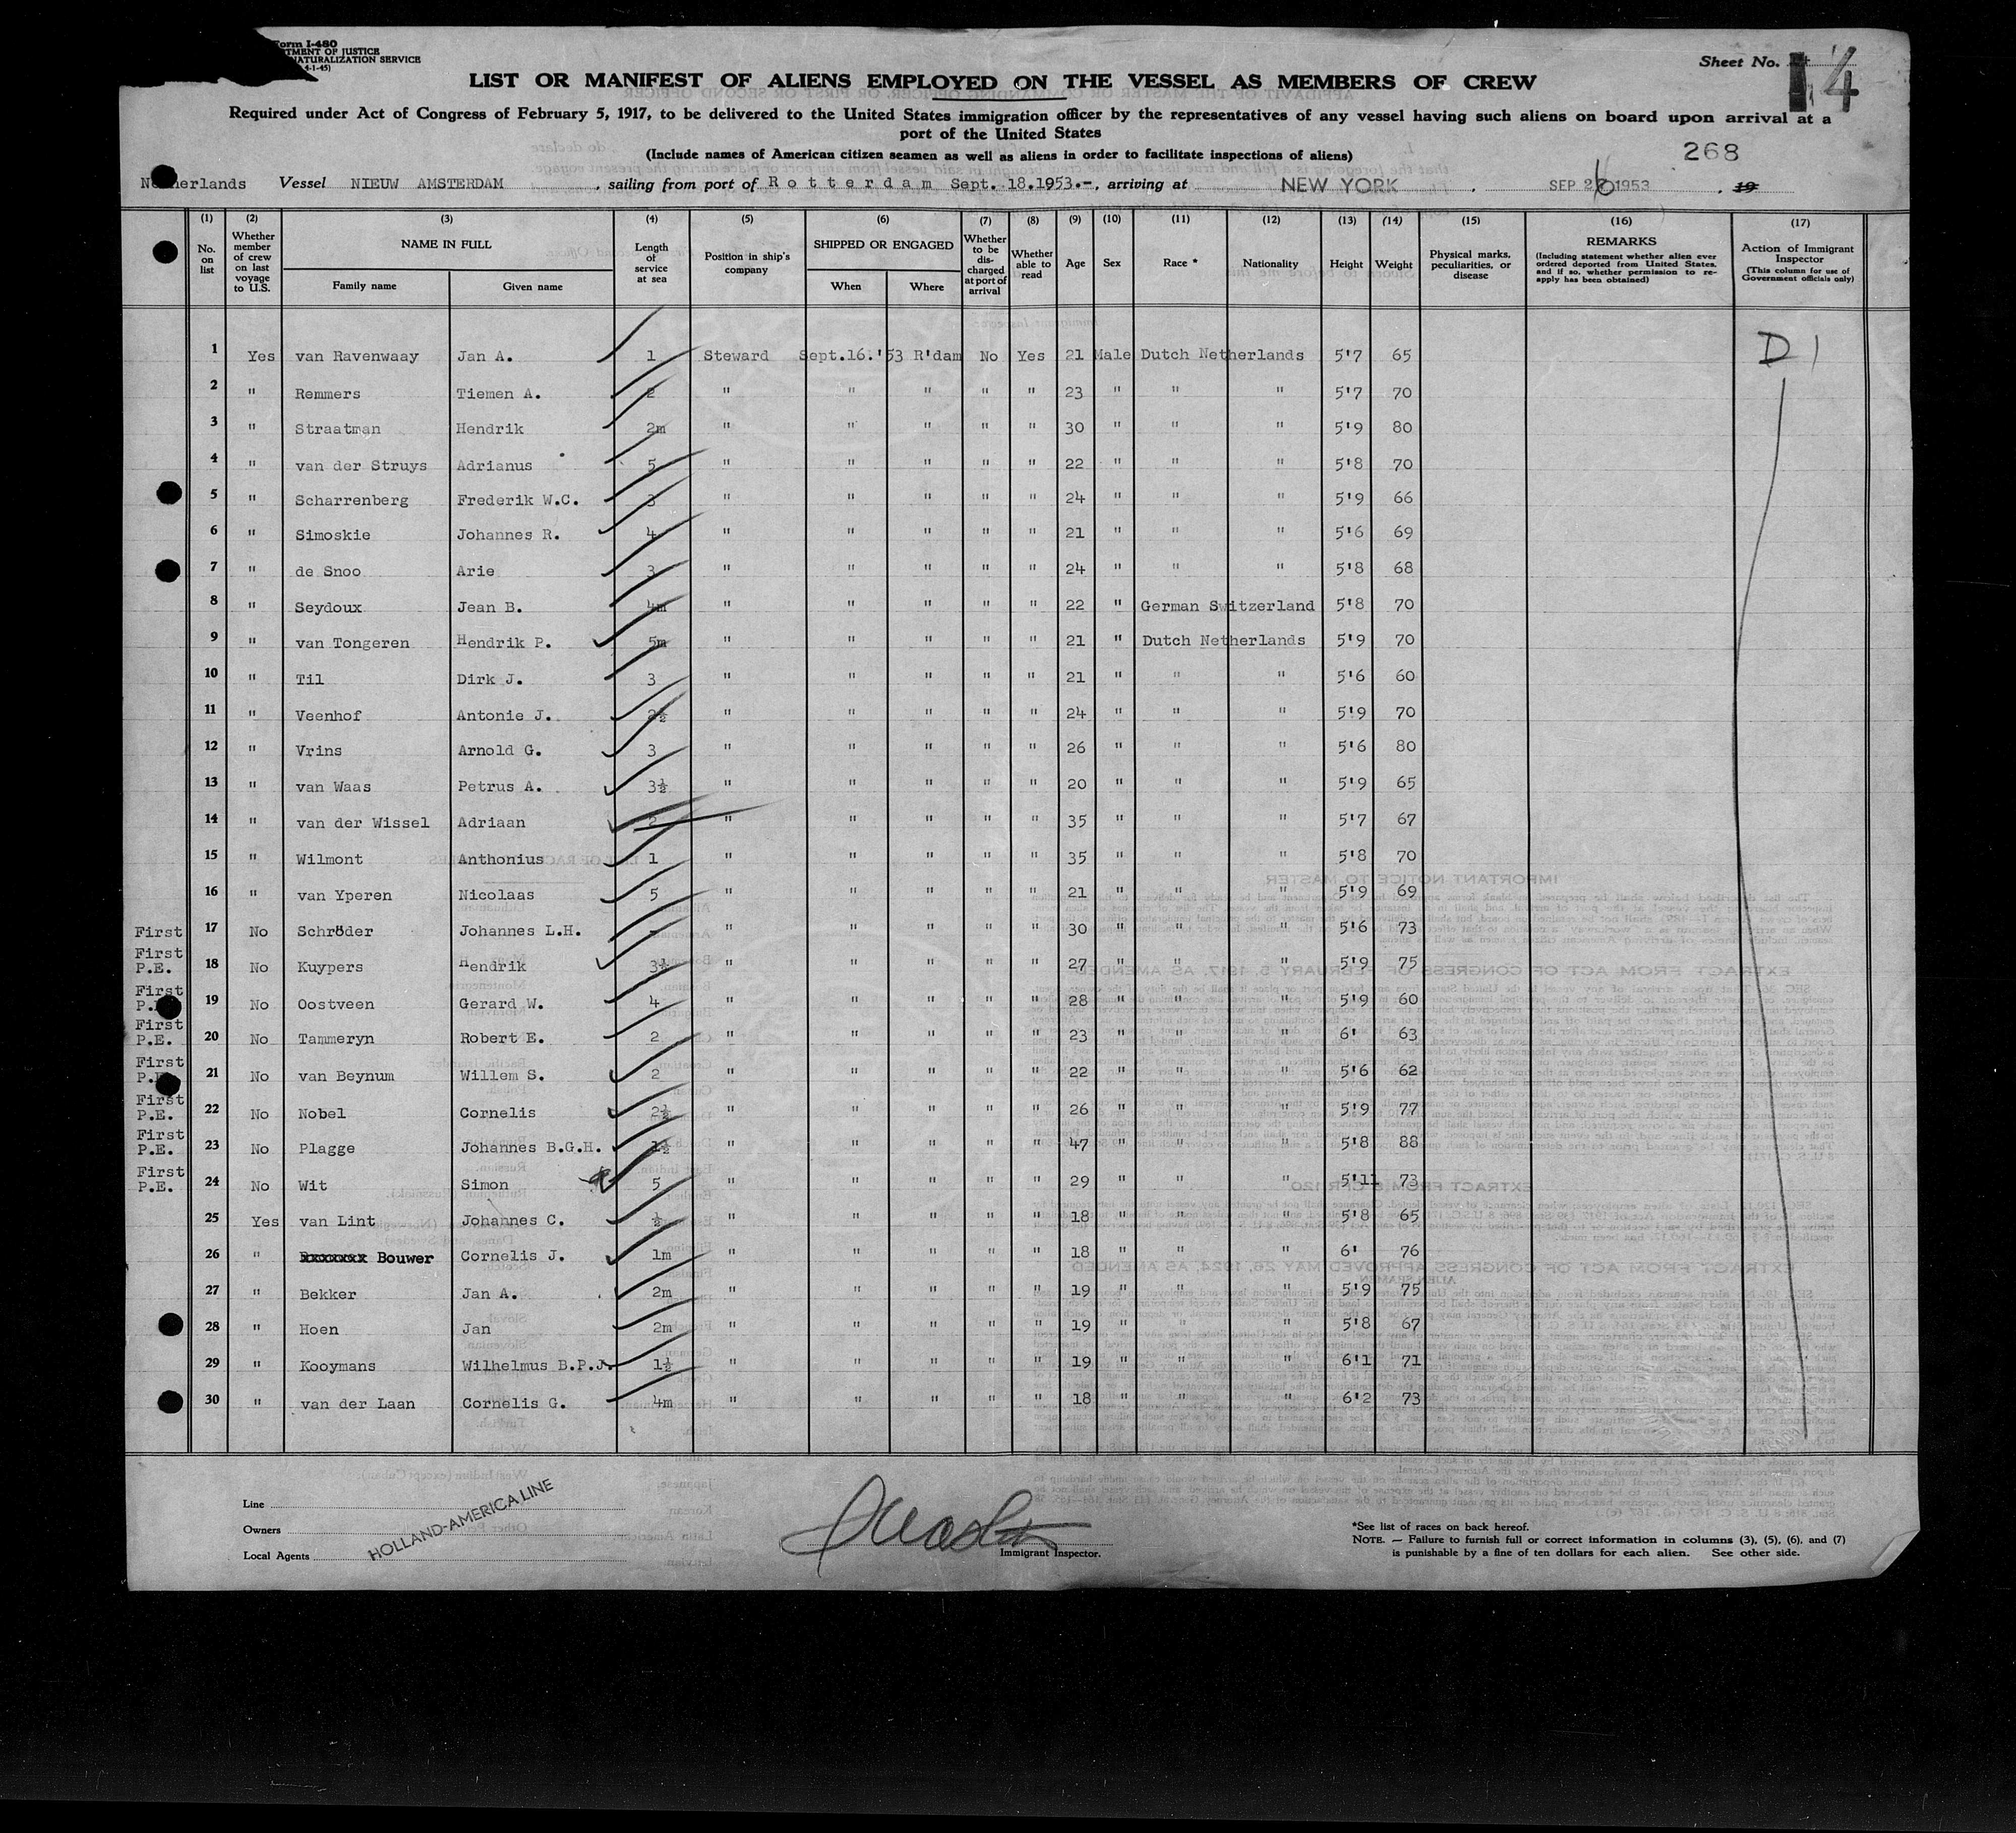 Form I-480
TMENT OF JUSTICE
NATURALIZATION SERVICE
4-1-45)
Sheet No. 14
LIST OR MANIFEST OF ALIENS EMPLOYED ON THE VESSEL AS MEMBERS OF CREW
Required under Act of Congress of February 5, 1917, to be delivered to the United States immigration officer by the representatives of any vessel having such aliens on board upon arrival at a
port of the United States
(Include names of American citizen seamen as well as aliens in order to facilitate inspections of aliens)
268
Netherlands Vessel NIEUW AMSTERDAM, sailing from port of Rotterdam Sept. 18.1953.-, arriving at NEW YORK, SEP 26 1953, 19
(1) (2) (3) (4) (5) (6) (7) (8) (9) (10) (11) (12) (13) (14) (15) (16) (17)
No. on list
Whether member of crew on last voyage to U.S.
NAME IN FULL
Family name Given name
Length of service at sea
Position in ship's company
SHIPPED OR ENGAGED
When Where
Whether to be discharged at port of arrival
Whether able to read
Age Sex Race * Nationality Height Weight
Physical marks, peculiarities, or disease
REMARKS
(Including statement whether alien ever ordered deported from United States, and if so, whether permission to reapply has been obtained)
Action of Immigrant Inspector
(This column for use of Government officials only)
1 Yes van Ravenwaay Jan A. 1 Steward Sept.16.'53 R'dam No Yes 21 Male Dutch Netherlands 5'7 65 D1
2 " Remmers Tiemen A. 2 " " " " " 23 " " " 5'7 70
3 " Straatman Hendrik 2m " " " " " 30 " " " 5'9 80
4 " van der Struys Adrianus 5 " " " " " 22 " " " 5'8 70
5 " Scharrenberg Frederik W.C. 3 " " " " " 24 " " " 5'9 66
6 " Simoskie Johannes R. 4 " " " " " 21 " " " 5'6 69
7 " de Snoo Arie 3 " " " " " 24 " " " 5'8 68
8 " Seydoux Jean B. 4m " " " " " 22 " German Switzerland 5'8 70
9 " van Tongeren Hendrik P. 5m " " " " " 21 " Dutch Netherlands 5'9 70
10 " Til Dirk J. 3 " " " " " 21 " " " 5'6 60
11 " Veenhof Antonie J. 2½ " " " " " 24 " " " 5'9 70
12 " Vrins Arnold G. 3 " " " " " 26 " " " 5'6 80
13 " van Waas Petrus A. 3½ " " " " " 20 " " " 5'9 65
14 " van der Wissel Adriaan 2 " " " " " 35 " " " 5'7 67
15 " Wilmont Anthonius 1 " " " " " 35 " " " 5'8 70
16 " van Yperen Nicolaas 5 " " " " " 21 " " " 5'9 69
First 17 No Schröder Johannes L.H. " " " " " 30 " " " 5'6 73
First P.E. 18 No Kuypers Hendrik 3½ " " " " " 27 " " " 5'9 75
First P.E. 19 No Oostveen Gerard W. 4 " " " " " 28 " " " 5'9 60
First P.E. 20 No Tammeryn Robert E. 2 " " " " " 23 " " " 6' 63
First P.E. 21 No van Beynum Willem S. 2 " " " " " 22 " " " 5'6 62
First P.E. 22 No Nobel Cornelis 2½ " " " " " 26 " " " 5'9 77
First P.E. 23 No Plagge Johannes B.G.H. 1½ " " " " " 47 " " " 5'8 88
First P.E. 24 No Wit Simon 5 " " " " " 29 " " " 5'11 73
25 Yes van Lint Johannes C. ½ " " " " " 18 " " " 5'8 65
26 " Bouwer Cornelis J. 1m " " " " " 18 " " " 6' 76
27 " Bekker Jan A. 2m " " " " " 19 " " " 5'9 75
28 " Hoen Jan 2m " " " " " 19 " " " 5'8 67
29 " Kooymans Wilhelmus B.P.J. 1½ " " " " " 19 " " " 6'1 71
30 " van der Laan Cornelis G. 4m " " " " " 18 " " " 6'2 73
Line
Owners
Local Agents
HOLLAND-AMERICA LINE
Immigrant Inspector.
*See list of races on back hereof.
NOTE. — Failure to furnish full or correct information in columns (3), (5), (6), and (7)
is punishable by a fine of ten dollars for each alien. See other side.